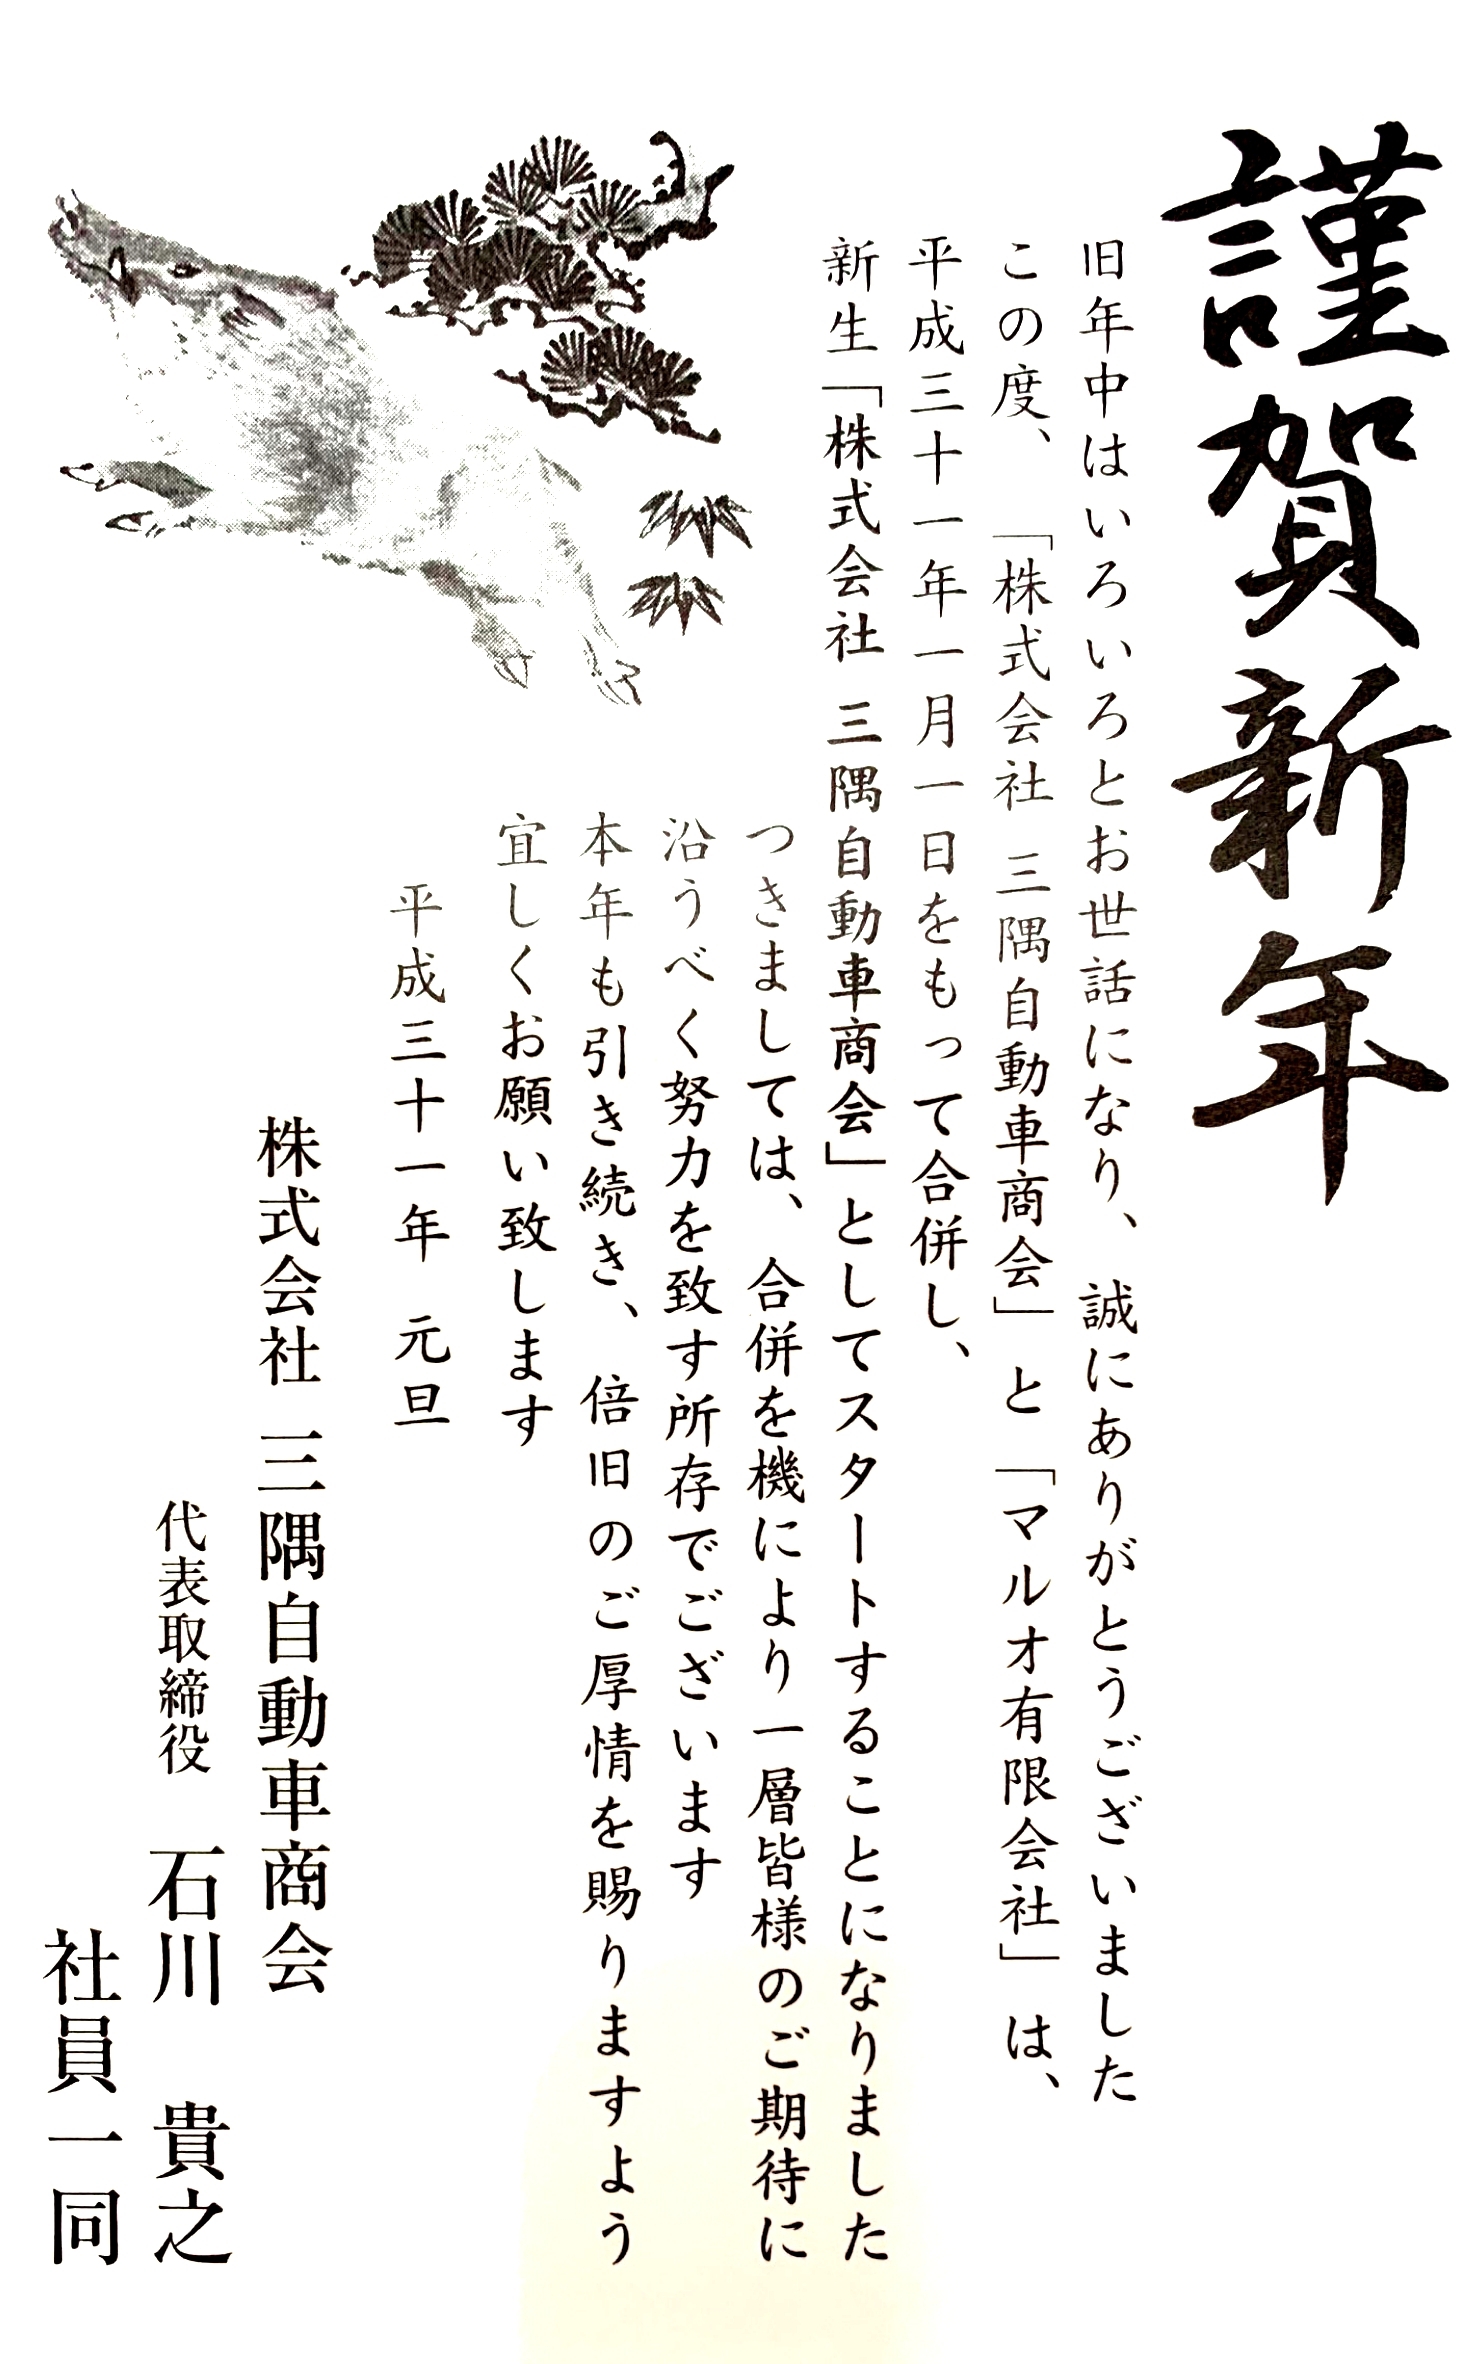 謹賀新年
旧年中はいろいろとお世話になり、誠にありがとうございました
この度、「株式会社 三隅自動車商会」と「マルオ有限会社」は、
平成三十一年一月一日をもって合併し、
新生「株式会社 三隅自動車商会」としてスタートすることになりました
つきましては、合併を機により一層皆様のご期待に
沿うべく努力を致す所存でございます
本年も引き続き、倍旧のご厚情を賜りますよう
宜しくお願い致します
平成三十一年 元旦
株式会社 三隅自動車商会
代表取締役 石川 貴之
社員一同